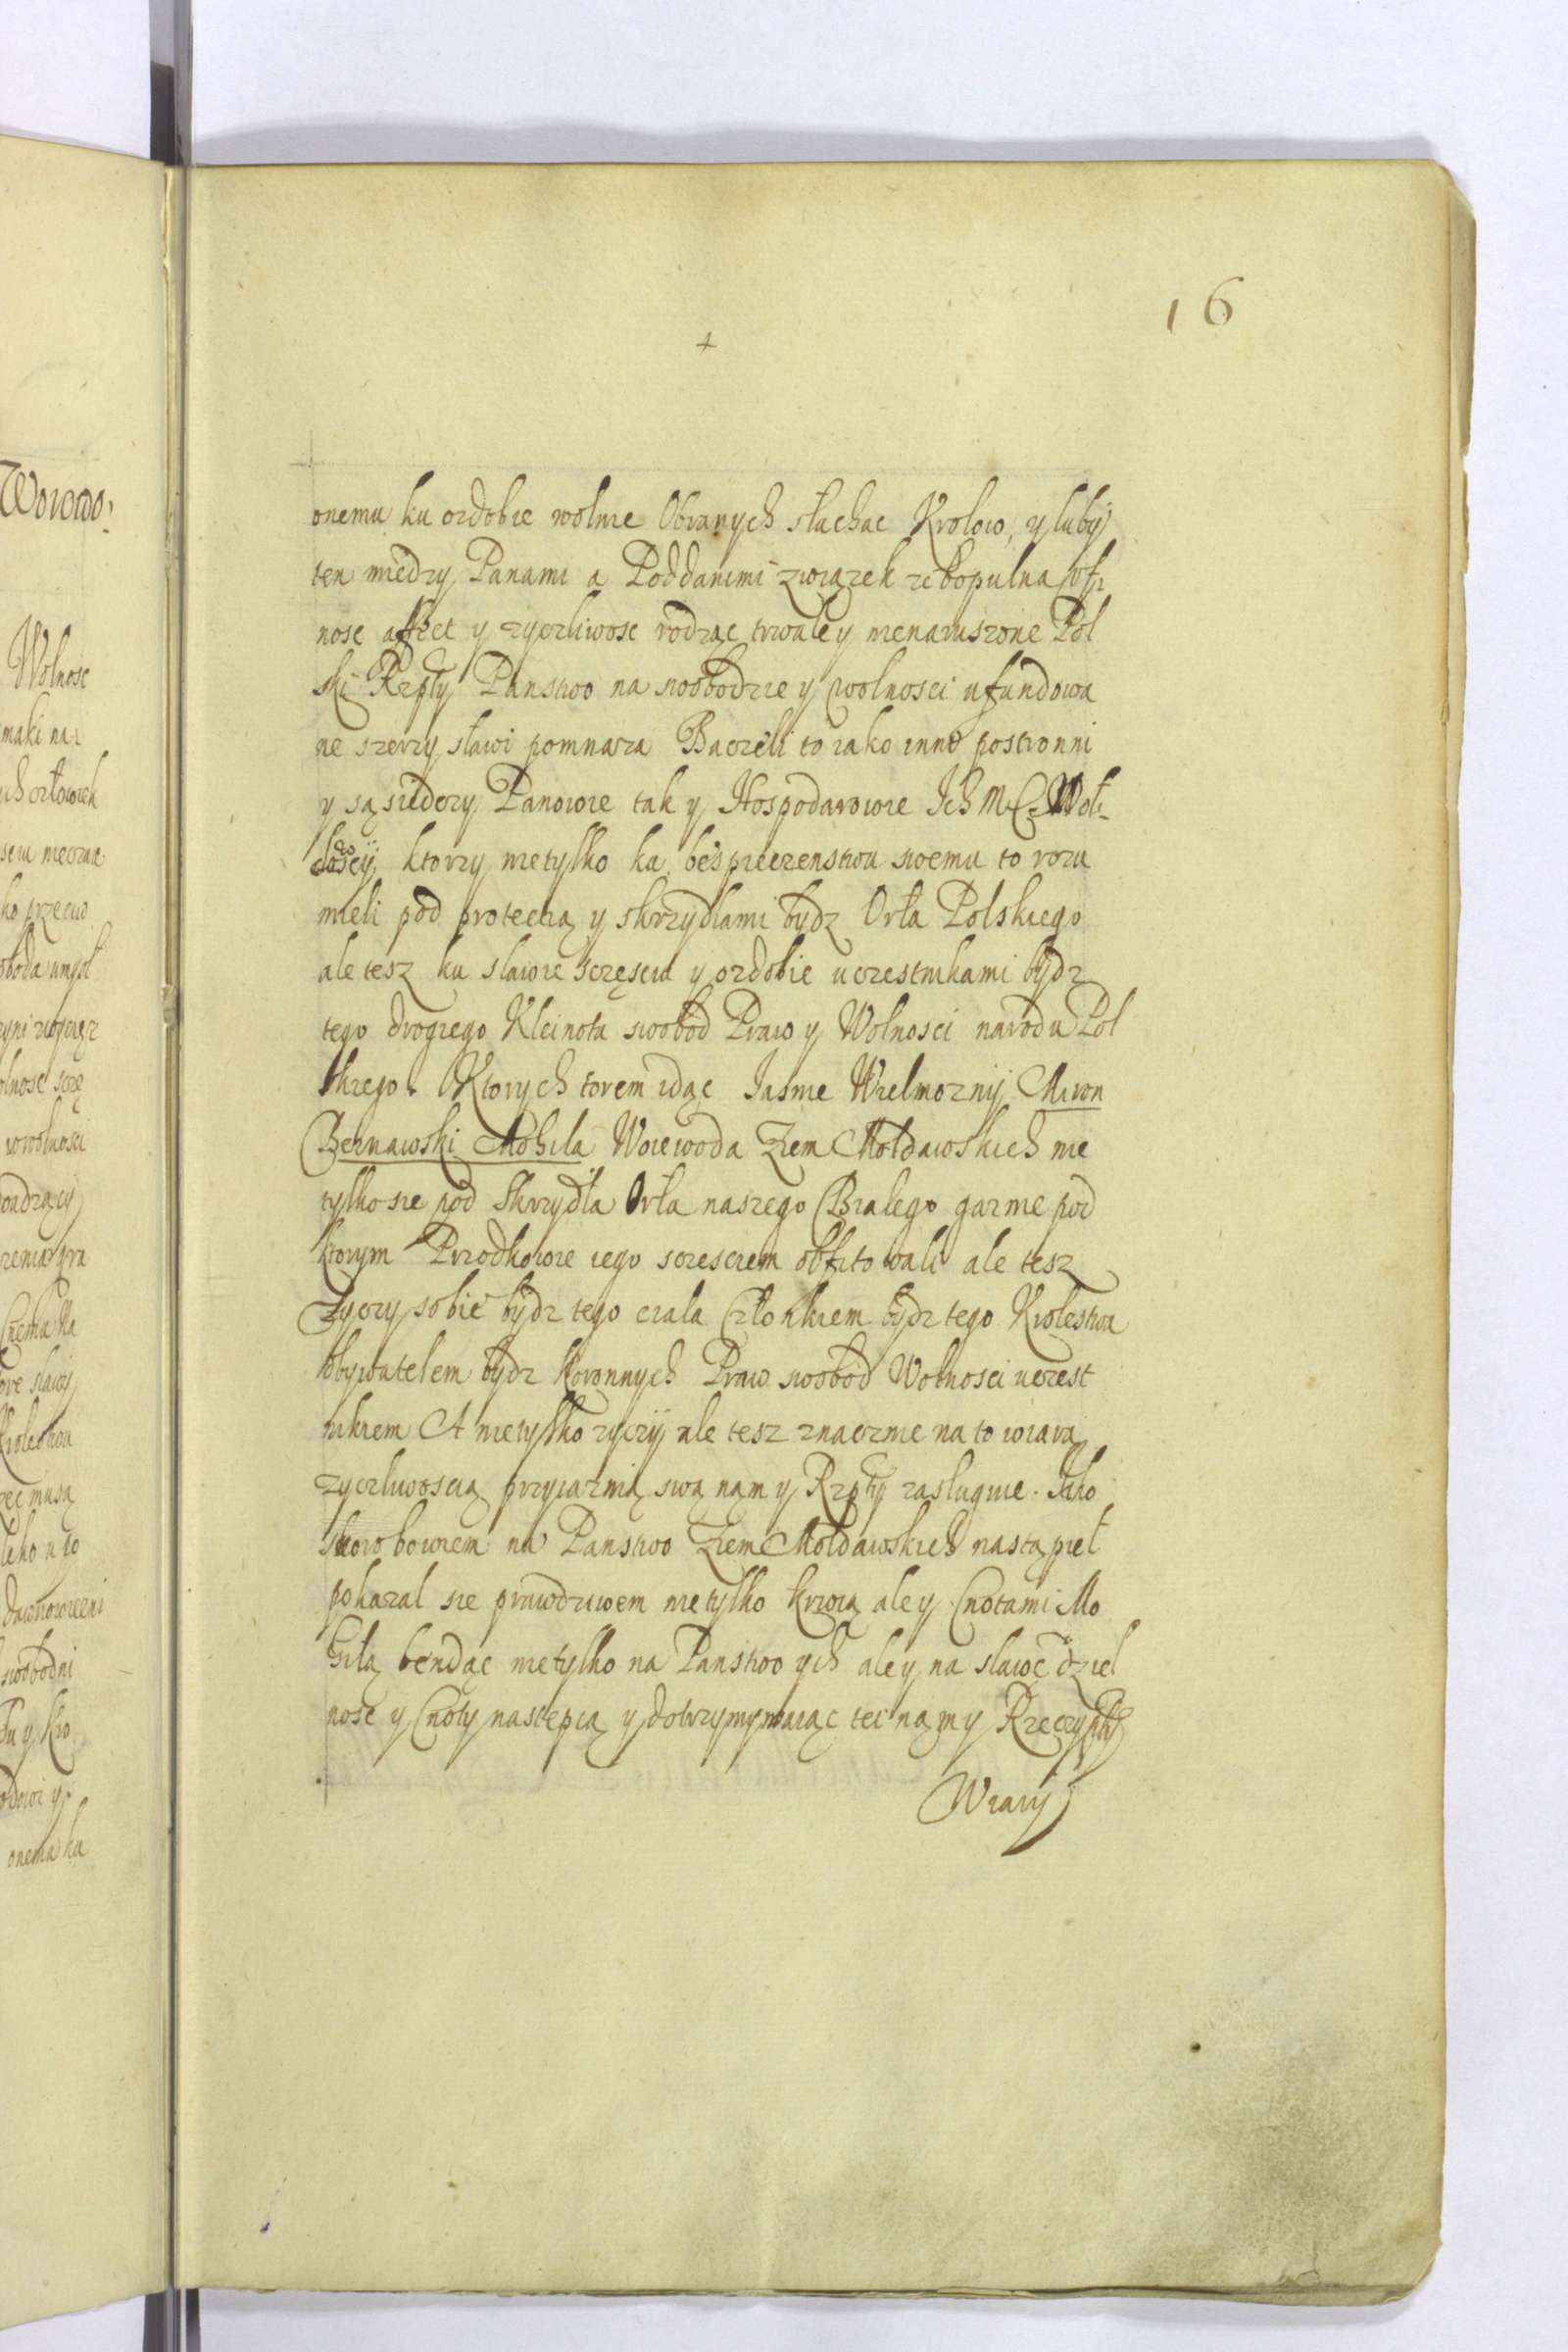 16
onemu ku ozdobie wolnie Obranych słuchac Krolow, y luby
ten miedzy Panami a Poddanimi związek ze
nosc affect y zyczliwosc rodząc trwale y nienaruszone Pol
ski Rzpty Panstwo na swobodzie y wolnosci ufundowa
ne szerzy sławi pomnaza Baczeli to iako inne postronni
y sąsiedzy Panowie tak y Hospodarowie Ich M
ktorzy nietylko ku bespieczenstwu swemu to rozu
mieli pod protectią y skrzydlami bydz Orła Polskiego
ale tesz ku slawie sczęsciu y ozdobie uczestnikami bydz
tego drogiego Kleinotu swobod Praw y Wolnosci narodu Pol
skiego. Ktorych torem idąc Iasnie Wielmozny Miron
Bernawski Mohila Woiewoda Ziem Mołdawskich nie
tylko sie pod Skrzydła Orła naszego Białego garnie pod
ktorym Przodkowie iego sczesciem obfitowali ale tesz
zyczy sobie bydz tego ciala Członkiem bydz tego Krolestwa
Obywatelem bydz Koronnych Praw swobod Wolnosci uczest
nikiem A nietylko zyczy ale tesz znacznie na to wiarą
zyczliwoscią przyiaznią swą nąm y Rzpty zasluguie. Iako
skoro bowiem na Panstwo Ziem Mołdawskich nastąpieł
pokazal sie prawdziwem nietylko krwią ale y Cnotami Mo
hiłą bendąc nietylko na Panstwo ych ale y na slawę dziel
nosc y Cnoty nastepcą y dotrzymywaiąc tei nąm y Rzeczyptey
Wiary